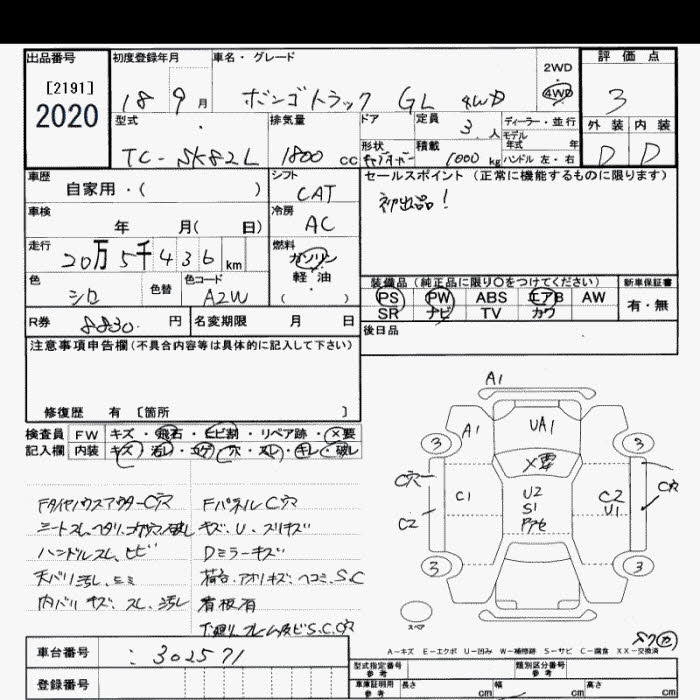 出品番号
[2191]
2020
初度登録年月
18 9月
車名・グレード
ボンゴトラック GL 4WD
2WD
4WD
評価点
3
型式
TC-SK82L
排気量
1800 cc
ドア
定員
3人
ディーラー・並行
モデル
年式 年
形状
積載
1000 kg
ハンドル 左・右
外装 内装
D D
車歴
自家用・( )
シフト
CAT
セールスポイント(正常に機能するものに限ります)
初出品!
車検
年 月( 日)
冷房
AC
走行
20万5千436km
燃料
ガソリン
軽・油
( )
色
シロ
色替
色コード
A2W
装備品(純正品に限り○をつけてください)
新車保証書
PS PW ABS エアB AW
SR ナビ TV カワ
有・無
R券
8830円
名変期限 月 日
後日品
注意事項申告欄(不具合内容等は具体的に記入して下さい)
修復歴 有 [箇所 ]
検査員 FW キズ・飛石・ヒビ割・リペア跡・×要
記入欄 内装 キズ・汚レ・コゲ・穴・スレ・キレ・破レ
FタイヤハウスアウターC穴
FパネルC穴
キズ、U、スリキズ
ハンドルスレ、ヒビ
Dミラーキズ
天バリ汚レ、シミ
荷台、アオリキズ、ヘコミ、S、C
内バリキズ、スレ、汚レ
看板有
下廻り、フレーム及ビS、C、穴
A1
A1
UA1
3
3
X要
C穴
C穴
C1
U2
S1
C2
U1
C2
3
3
スペア
A-キズ E-エクボ U-凹み W-補修跡 S-サビ C-腐食 XX-交換済
車台番号
:302571
登録番号
型式指定番号
参考
類別区分番号
参考
車庫証明用
参考
長さ cm 幅 cm 高さ cm